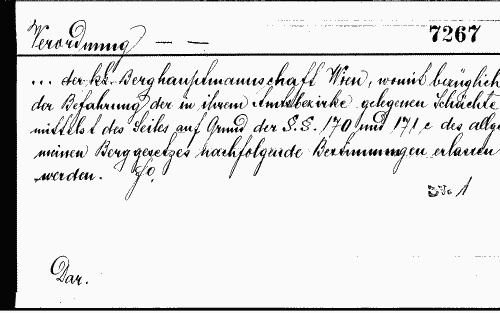 Verordnung — —
7267
... der kk. Berghauptmannschaft Wien, womit bezüglich
der Befahrung der in ihrem Amtsbezirke gelegenen Schächte
mittelst des Seiles auf Grund der §.§. 170 und 171 c des allge
meinen Berggesetzes nachfolgende Bestimmungen erlassen
werden. 8/o.
1
Dar.